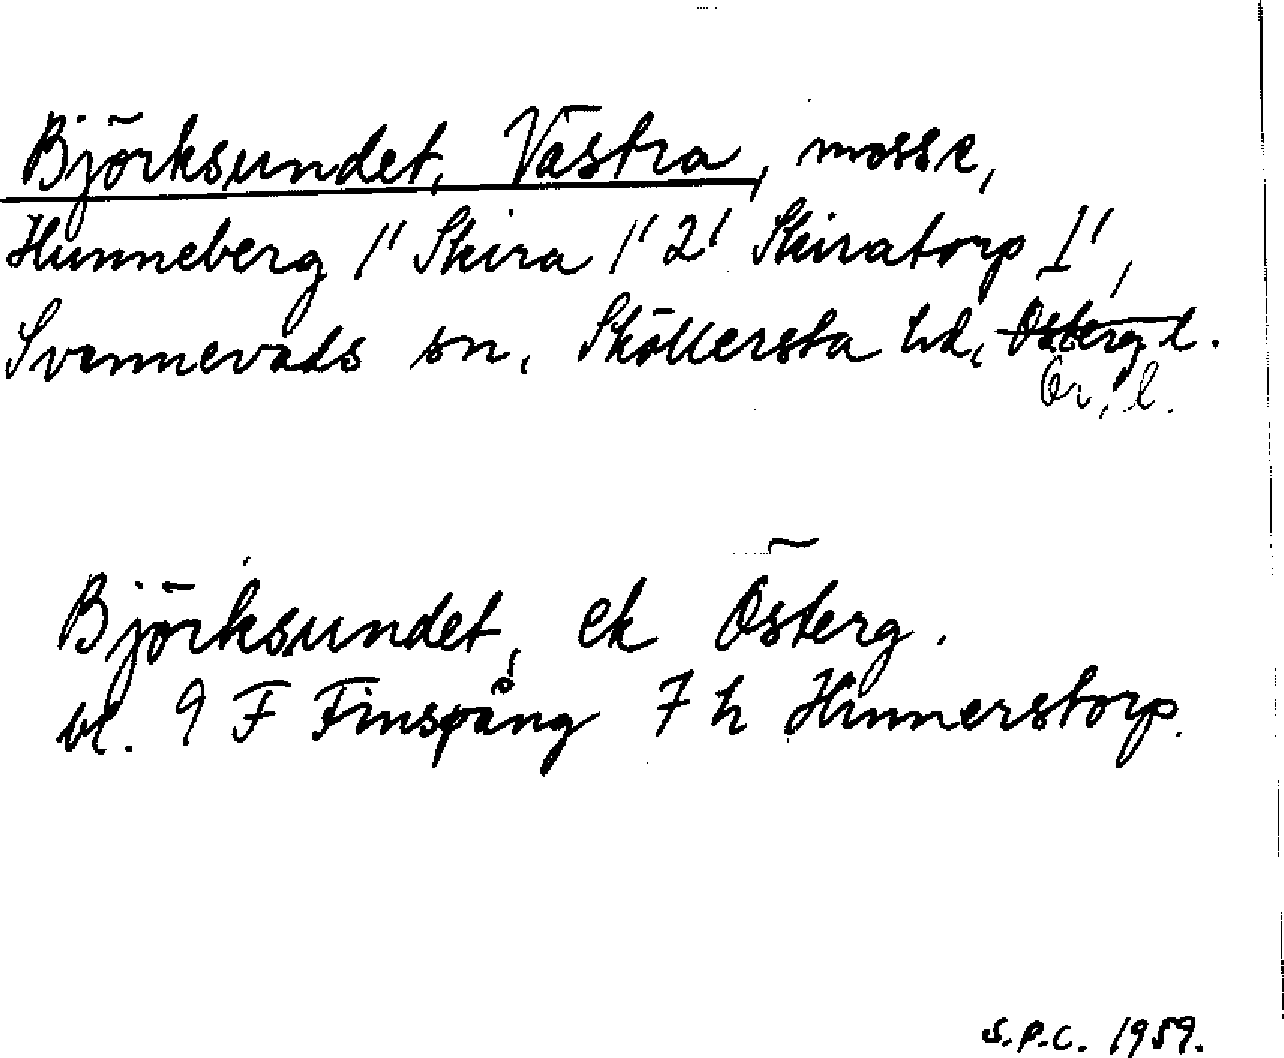 Björksundet, Västra, mosse,
Hunneberg 1/1 Skira 1/1 2/1 Skiratorp 1/1,
Svennevads sn, Sköllersta hd, Österg l.
Ör. l.
Björksundet, ek Österg.
bl. 9 F Finspång 7 h Hunnerstorp.
S.P.C. 1959.